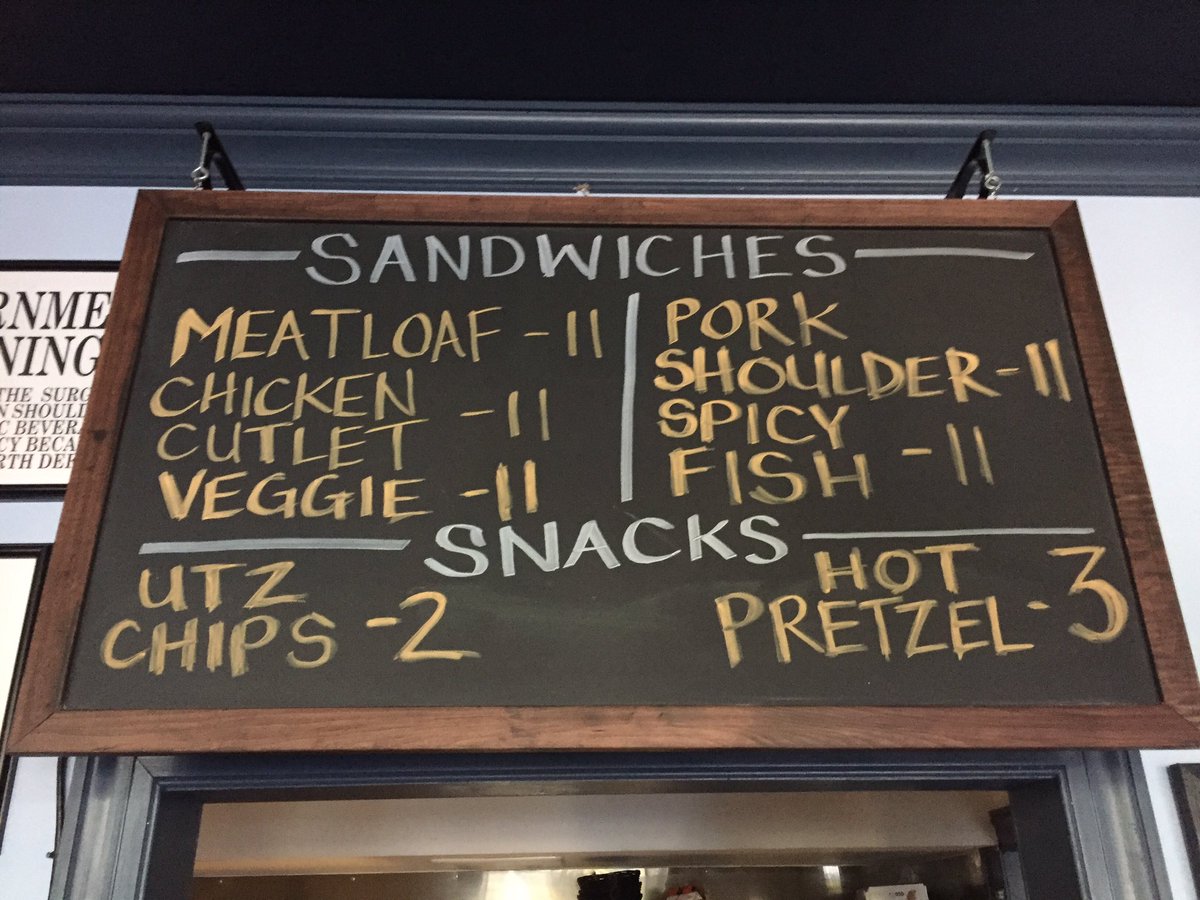 SANDWICHES
MEATLOAF - 11
CHICKEN
CUTLET - 11
VEGGIE - 11
PORK
SHOULDER - 11
SPICY
FISH - 11
SNACKS
UTZ
CHIPS - 2
HOT
PRETZEL - 3
RNME
NING
THE SURG
N SHOUL
C BEVER
CY BECA
RTH DEF